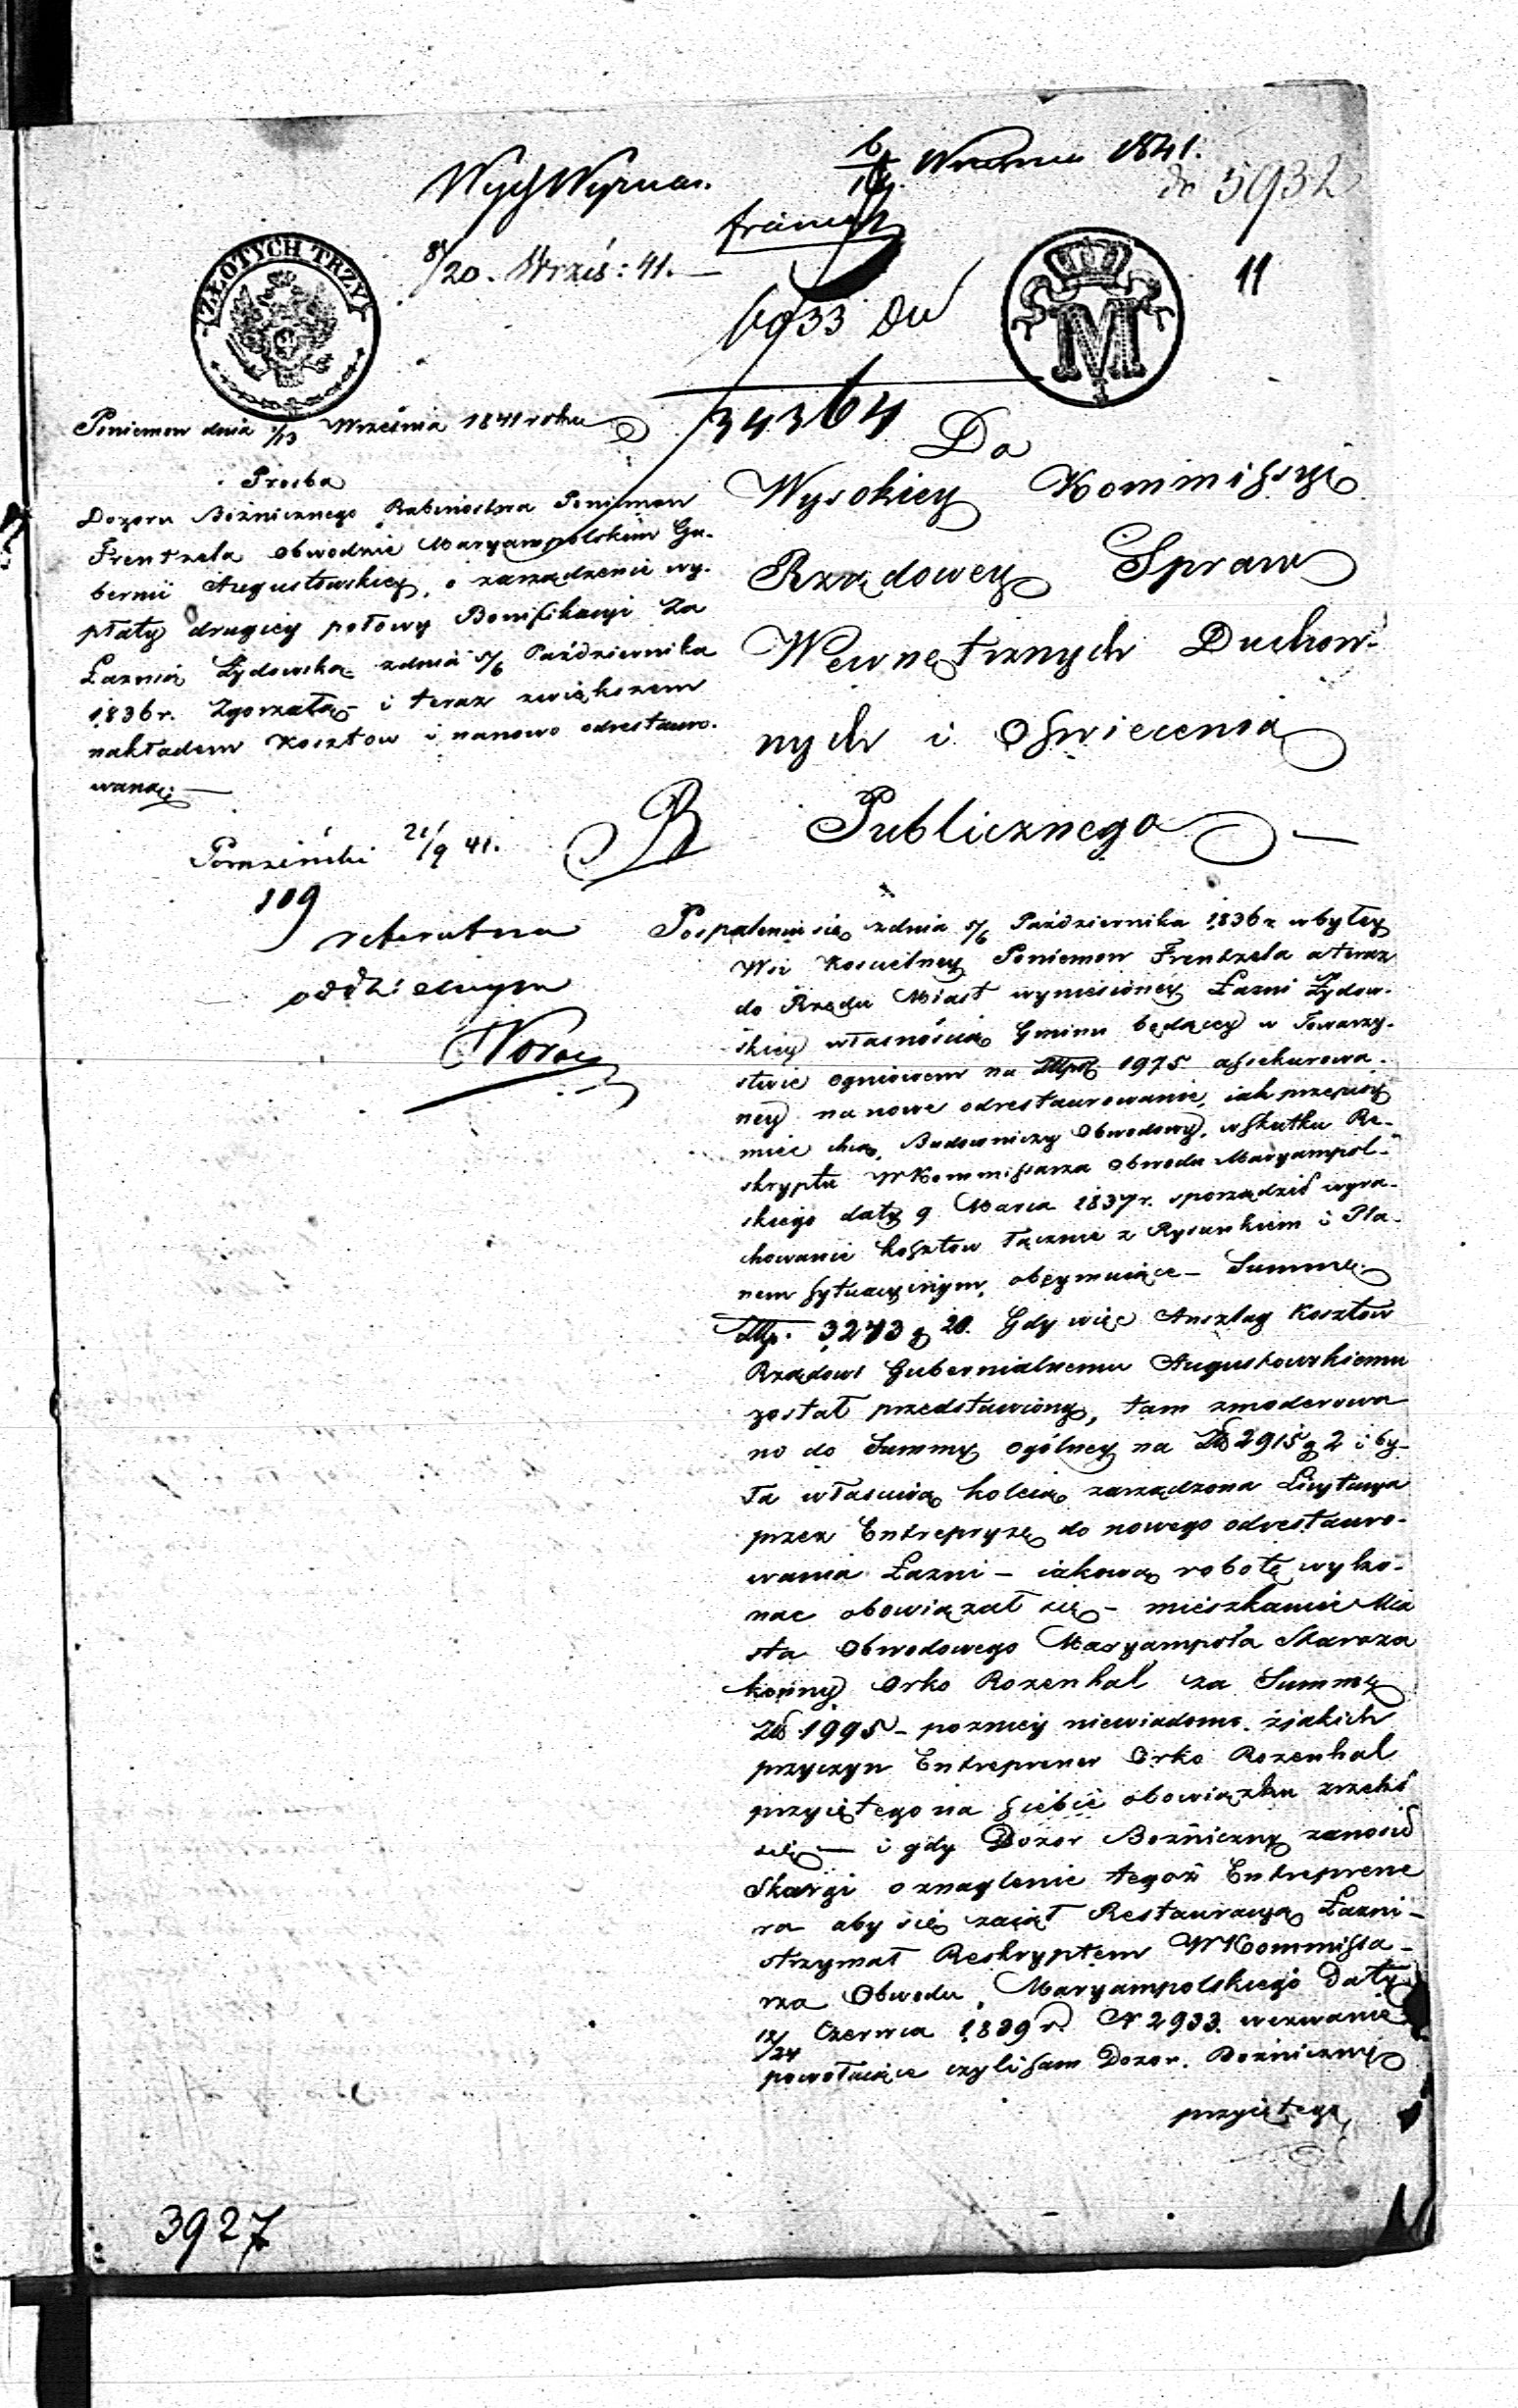 Września 1841.
do 5932
Wyż Wyznań.
8/20. Wrześ: 41.—
11
ZŁOTYCH TRZY
M
6933 Du
34364
Poniemon dnia 1/13 Września 1841 roku
Prośba
Dozoru Bożnicznego Rabinostwa Poniemon
Frentzela Obwodzie Maryampolskim Gu-
bernii Augustowskiey, o zarządzenie wy-
płaty drugiey połowy Bonifikacyi Za
Łaznią Żydowską zdnia 5/6 Października
1836 r. Zgorzałą – i teraz zwiększem
nakładem Kosztow i nanowo odrestauro-
waną. —
21/9 41.
109
referatura
oddzielnym
Do
Wysokiey Kommifsyi
Rządowey Spraw
Wewnętrznych Duchow-
nych i Ofwiecenia
Publicznego —
Po spaleniu się zdnia 5/6 Października 1836 r wbyłey
Wsi Koscielney Poniemon Frentzela a teraz
do Rzędu Miast wyniesioney Łazni Żydow-
skiey własnoscią Gminu będącey w Towarzy-
stwie ogniowem na Złp 1975 afsekurowa-
ney na nowe odrestaurowanie, iak przepisy
miec chcą, Budowniczy Obwodowy, wskutku Re-
skryptu W Kommifsarza Obwodu Maryampol-
skiego daty 9 Marca 1837 r. sporządził wyra-
chowanie kofztow łącznie z Rysunkiem i Pla-
nem fytuacyinym, obeymuiące – Summę
Złp. 3273 g 20. Gdy więc Anszlag Kosztow
Rządowi Gubernialnemu Augustowskiemu
został przedstawiony, tam zmoderowa
no do Summy ogólney na Zł 2915 g 2 i by-
ła właściwą koleią zarządzona Licytacya
przez Entrepryzę do nowego odrestauro-
wania Łazni – iakową robotę wyko-
nac obowiązał się – mieszkaniec Mia
sta Obwodowego Maryampola Staroza
konny Orko Rozenhal za Summę
Zł 1995 – pozniey niewiadomo zjakich
przyczyn Entreprener Orko Rozenhal
przyiętego na fiebie obowiązku zrzekł
się — i gdy Dozor Bożniczny zanosił
Skargi o znaglenie tegoż Entreprene
ra aby się zaiął Restauracyą Łazni –
otrzymał Reskryptem W Kommifsa-
rza Obwodu Maryampolskiego Daty
12/24 Czerwca 1839 r. N 2933. wezwanie
powołuiące czyli fam Dozor Bożniczny
przyiętego
3927